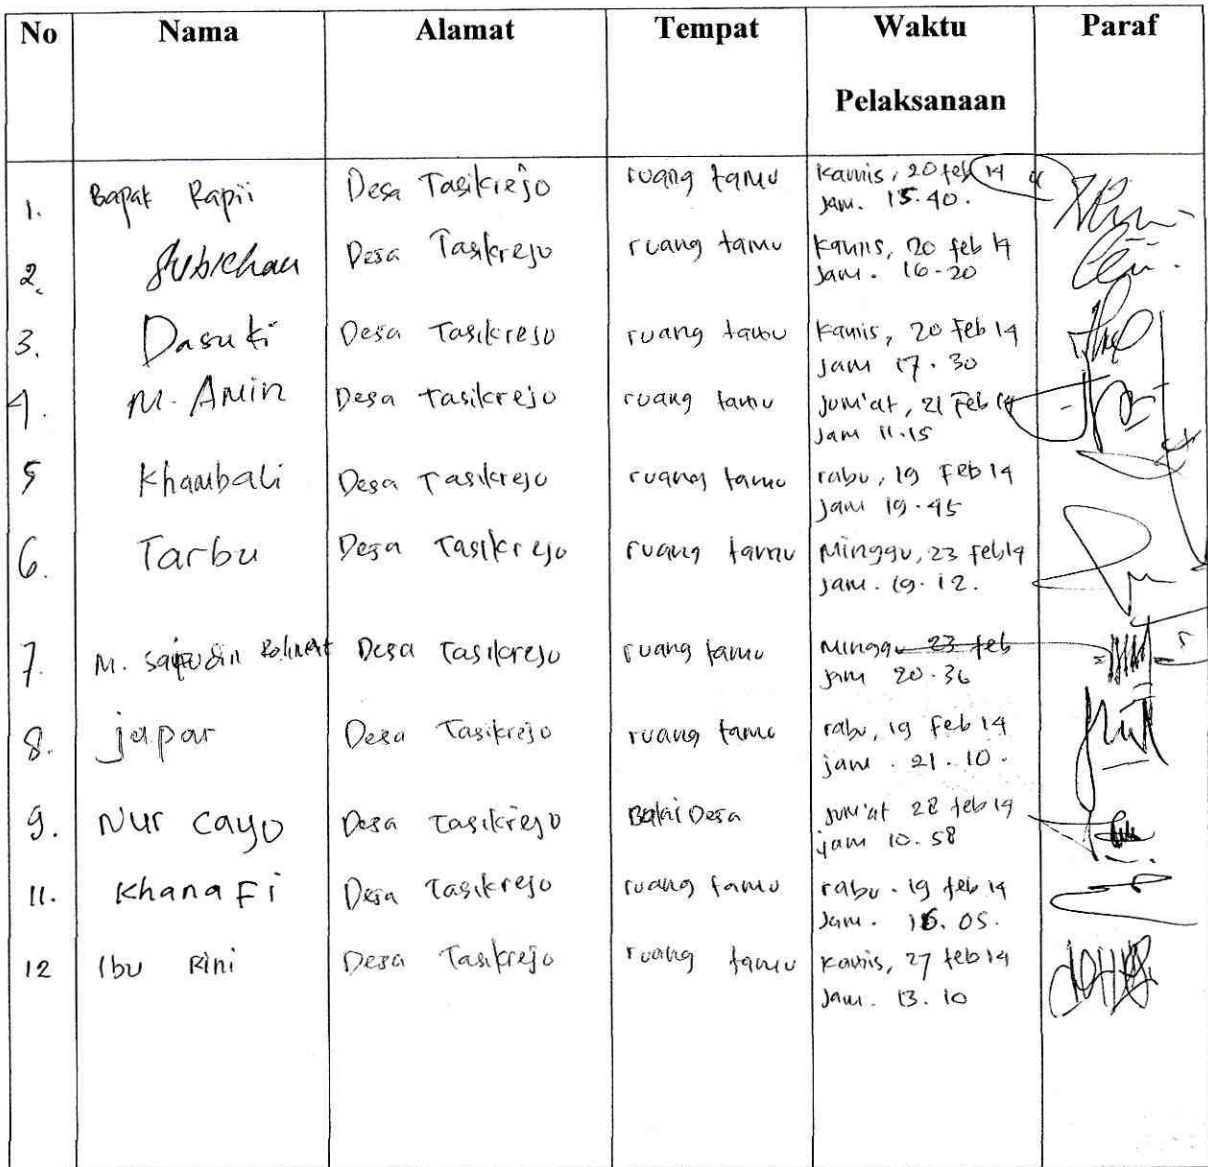 No Nama Alamat Tempat Waktu Pelaksanaan Paraf
1. Bapak Rapii Desa Tasikrejo ruang tamu Kamis, 20 feb 14
jam. 15.40.
2. Subichan Desa Tasikrejo ruang tamu Kamis, 20 feb 14
jam. 16-20
3. Dasuki Desa Tasikrejo ruang tamu Kamis, 20 Feb 14
jam 17.30
4. M. Amin Desa Tasikrejo ruang tamu Jum'at, 21 Feb 14
jam 11.15
5 Khambali Desa Tasikrejo ruang tamu rabu, 19 Feb 14
jam 19.45
6. Tarbu Desa Tasikrejo ruang tamu Minggu, 23 feb 14
jam. 19.12.
7. M. Saipudin Desa Tasikrejo ruang tamu Minggu 23 feb
jam 20.36
8. japar Desa Tasikrejo ruang tamu rabu, 19 Feb 14
jam. 21.10.
9. Nur cayo Desa Tasikrejo Balai Desa Jum'at 28 feb 14
jam 10.58
11. Khana Fi Desa Tasikrejo ruang tamu rabu. 19 feb 14
Jam. 16.05.
12 Ibu Rini Desa Tasikrejo ruang tamu Kamis, 27 feb 14
Jam. 13.10